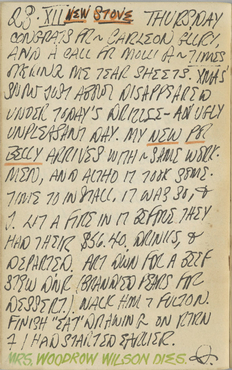 28·XII NEW STOVE THURSDAY
CONGRATS FR~ CARLEON
AND A CALL FR MOLLI A~TIMES
ME TEAR SHEETS. XMAS'
SNOW JUST ABOUT DISAPPEARED
UNDER TODAY'S DRIZZLE–AN UGLY
UNPLEASANT DAY. MY NEW POT
BELLY ARRIVES WITH~SAME WORK-
MEN, AND ALTHO IT TOOK SOME
TIME TO INSTALL, IT WAS SO, &
I LIT A FIRE IN IT BEFORE THEY
HAD THEIR $56.40, DRINKS, &
DEPARTED. ART DWN FOR A BEEF
STEW DNR (BRANDIED PEARS FOR
DESSERT). WALK HM T FULTON.
FINISH "EAT" DRAWING ON RTRN
I HAD STARTED EARLIER.
MRS. WOODROW WILSON DIES.